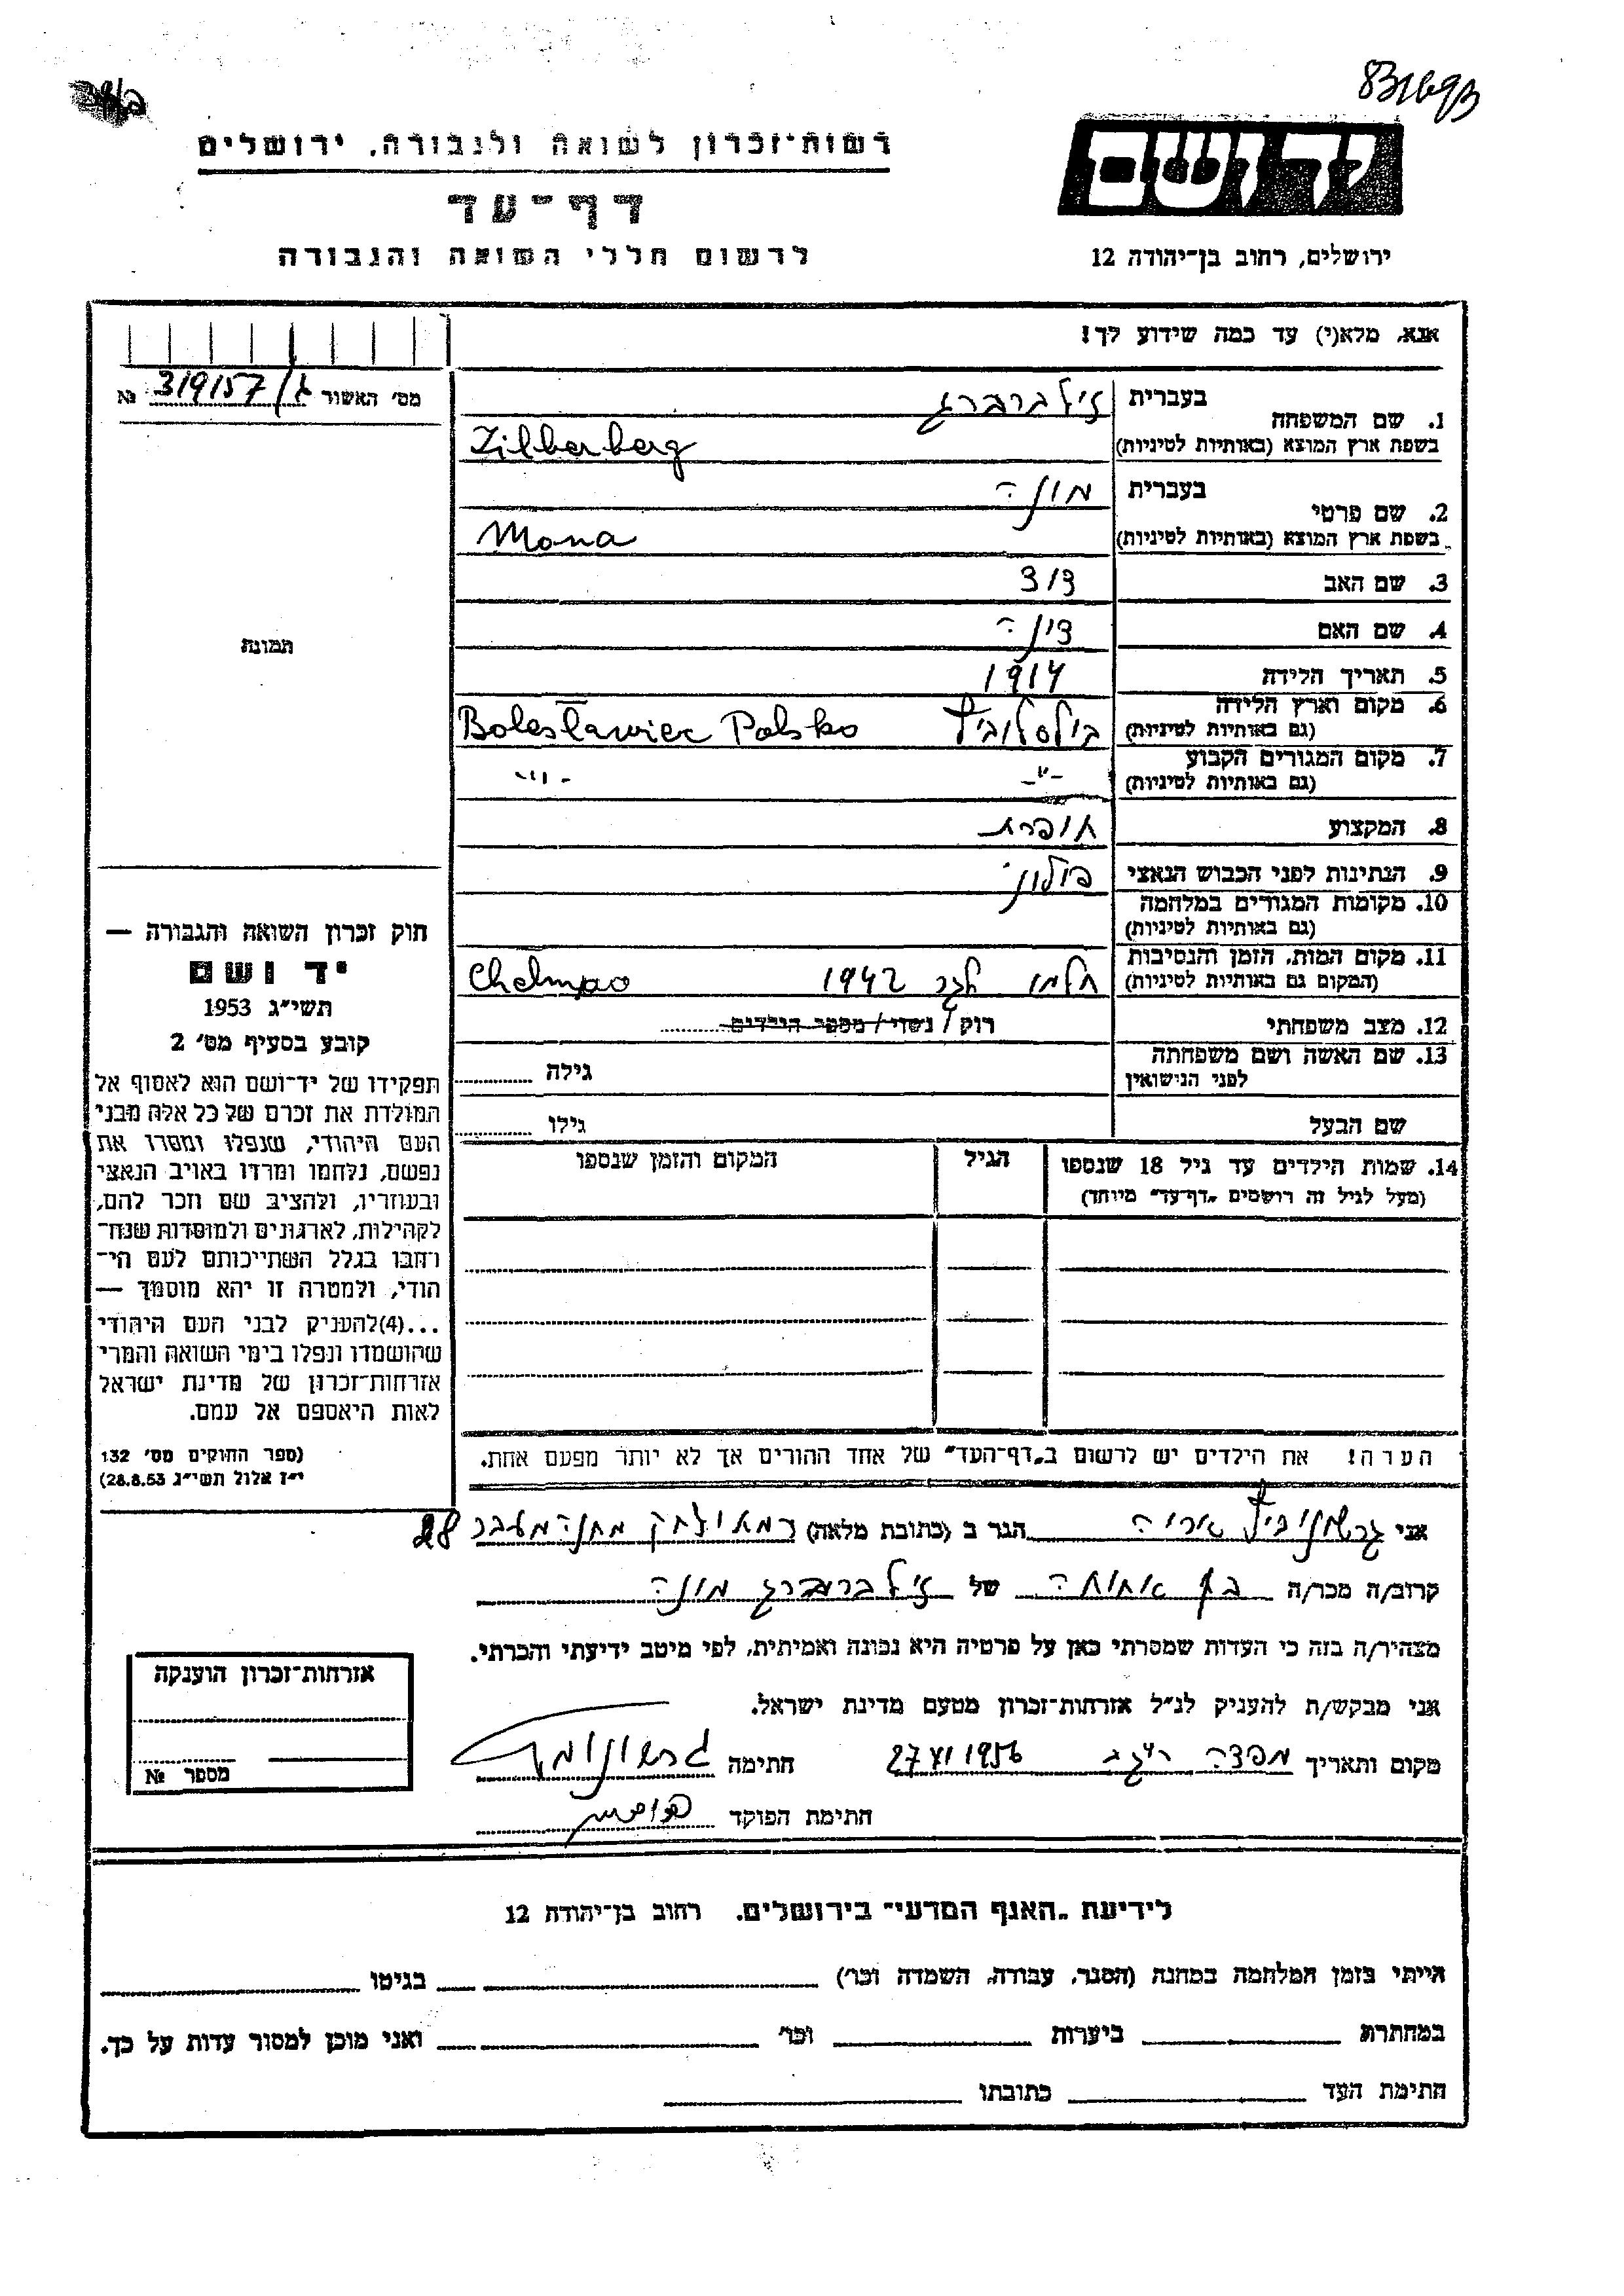 רשות־זכרון לשואה ולגבורה, ירושלים
דף־עד
לרשום חללי השואה והגבורה
יד ושם
ירושלים, רחוב בן־יהודה 12
אנא, מלא(י) עד כמה שידוע לך!
מס׳ האשור ג/319157 №
תמונה
1. שם המשפחה
בעברית זילברברג
בשפת ארץ המוצא (באותיות לטיניות) Zilberberg
2. שם פרטי
בעברית מונה
בשפת ארץ המוצא (באותיות לטיניות) Mona
3. שם האב דוד
4. שם האם דינה
5. תאריך הלידה 1914
6. מקום וארץ הלידה
(גם באותיות לטיניות) בולסלוביץ Bolesławiec Polsko
7. מקום המגורים הקבוע
(גם באותיות לטיניות) -"- -"-
8. המקצוע תופרת
9. הנתינות לפני הכבוש הנאצי פולוני
10. מקומות המגורים במלחמה
(גם באותיות לטיניות)
11. מקום המות, הזמן והנסיבות
(המקום גם באותיות לטיניות) חלמנו 1942 Chelmno
12. מצב משפחתי רוק / נשוי / מספר הילדים
13. שם האשה ושם משפחתה
לפני הנישואין גילה
שם הבעל גילו
14. שמות הילדים עד גיל 18 שנספו
(מעל לגיל זה רושמים „דף־עד״ מיוחד)
הגיל
המקום והזמן שנספו
הערה! את הילדים יש לרשום ב„דף־העד״ של אחד ההורים אך לא יותר מפעם אחת.
חוק זכרון השואה והגבורה —
יד ושם
תשי״ג 1953
קובע בסעיף מס׳ 2
תפקידו של יד־ושם הוא לאסוף אל
המולדת את זכרם של כל אלה מבני
העם היהודי, שנפלו ומסרו את
נפשם, נלחמו ומרדו באויב הנאצי
ובעוזריו, ולהציב שם וזכר להם,
לקהילות, לארגונים ולמוסדות שנח־
רחבו בגלל השתייכותם לעם הי־
הודי, ולמטרה זו יהא מוסמך —
...(4)להעניק לבני העם היהודי
שהושמדו ונפלו בימי השואה והמרי
אזרחות־זכרון של מדינת ישראל
לאות היאספם אל עמם.
(ספר החוקים מס׳ 132
י״ז אלול תשי״ג 28.8.53)
אני אריה הגר ב (כתובת מלאה) 28
קרוב/ה מכר/ה בן אחותה של זילברברג מונה
מצהיר/ה בזה כי העדות שמסרתי כאן על פרטיה היא נכונה ואמיתית, לפי מיטב ידיעתי והכרתי.
אני מבקש/ת להעניק לנ״ל אזרחות־זכרון מטעם מדינת ישראל.
מקום ותאריך 27 XI 1956 חתימה
חתימת הפוקד
אזרחות־זכרון הוענקה
מספר №
לידיעת „האגף המדעי״ בירושלים, רחוב בן־יהודה 12
הייתי בזמן המלחמה במחנה (הסגר, עבודה, השמדה וכר׳) בגיטו
במחתרת ביערות וכר׳ ואני מוכן למסור עדות על כך.
חתימת העד כתובתו